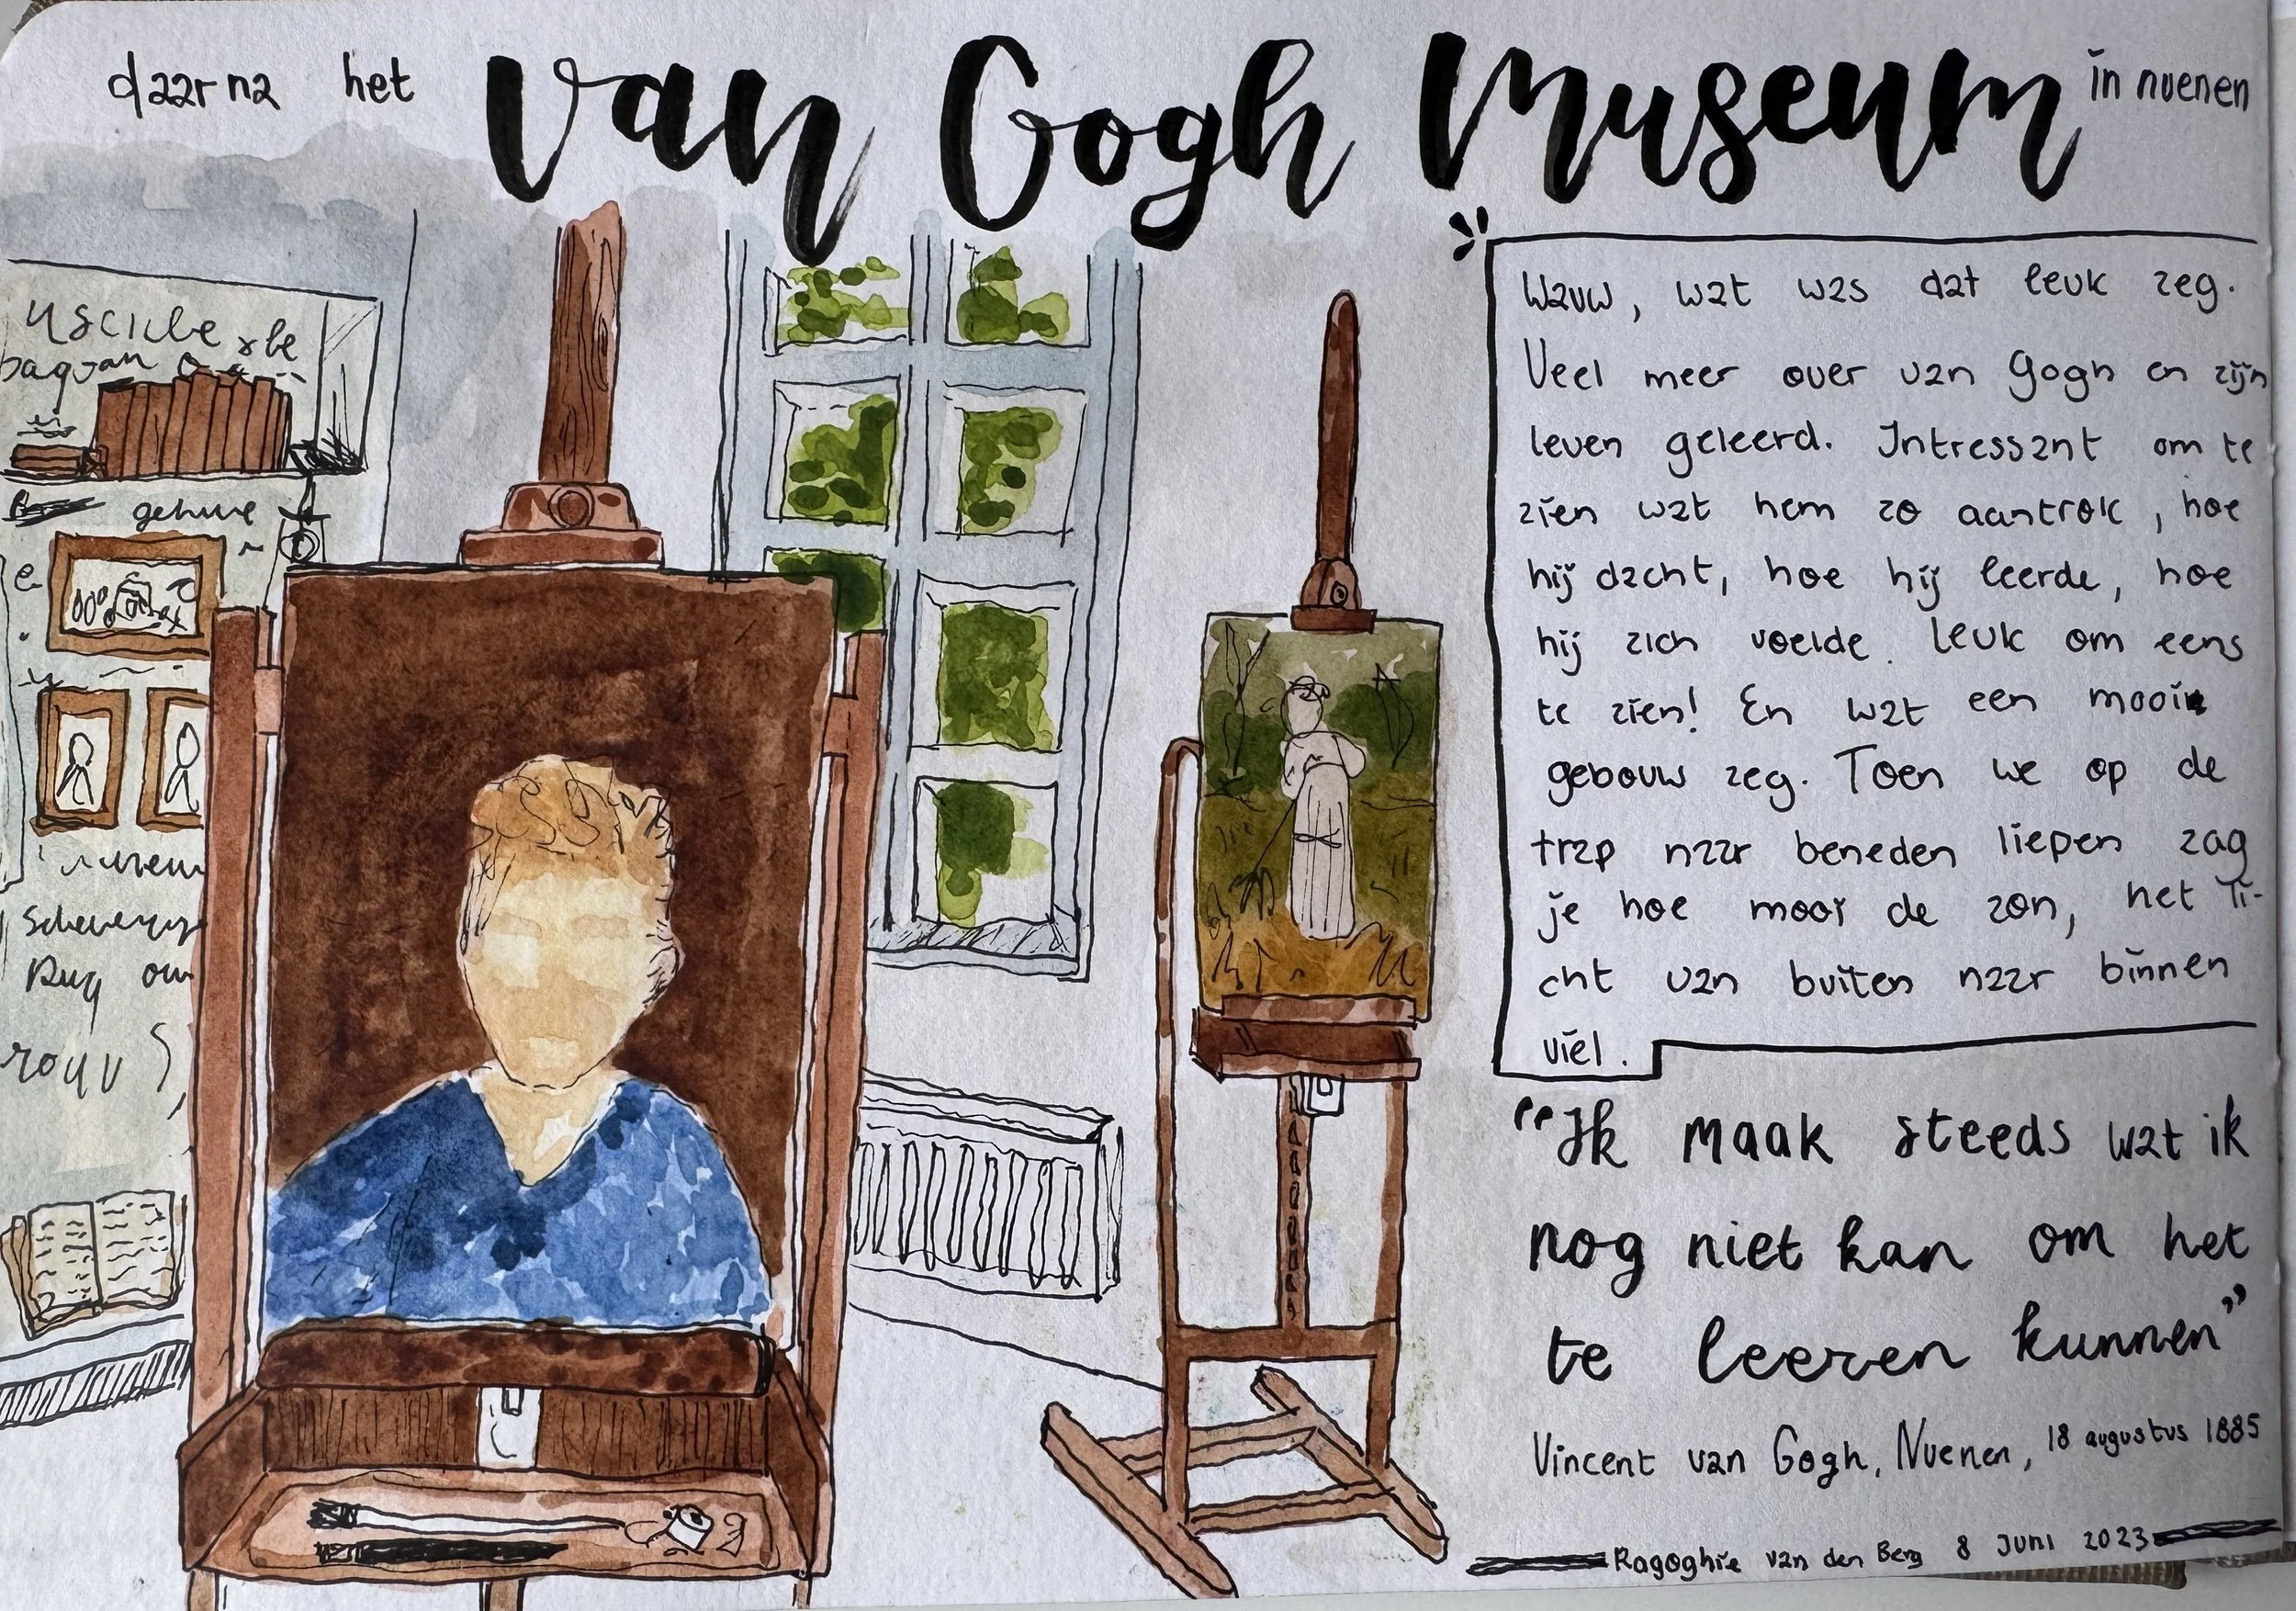 daarna het Van Gogh Museum in nuenen
Wauw, wat was dat leuk zeg.
Veel meer over van Gogh en zijn
leven geleerd. Intressant om te
zien wat hem zo aantrok, hoe
hij dacht, hoe hij leerde, hoe
hij zich voelde. Leuk om eens
te zien! En wat een mooi
gebouw zeg. Toen we op de
trap naar beneden liepen zag
je hoe mooi de zon, het li-
cht van buiten naar binnen
viel.
"Ik maak steeds wat ik
nog niet kan om het
te leeren kunnen"
Vincent van Gogh, Nuenen, 18 augustus 1885
Ragoghie van den Berg 8 Juni 2023